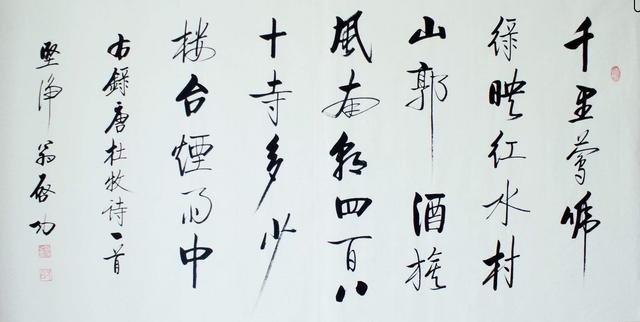 千里莺啼
绿映红水村
山郭酒旗
風南朝四百八
十寺多少
楼台煙雨中
右録唐杜牧诗一首
坚净翁启功